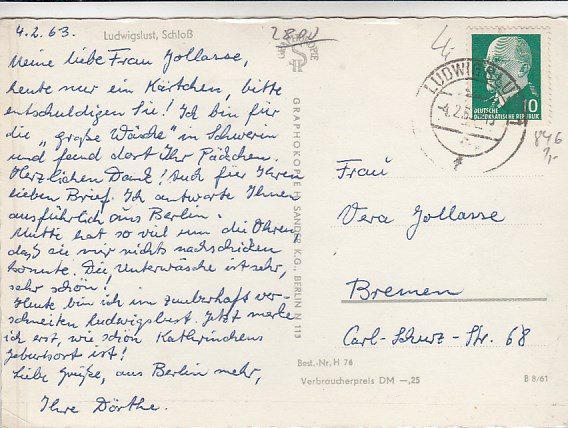 4.2.63.
Ludwigslust, Schloß
Meine liebe Frau Jollasse,
heute nur ein Kärtchen, bitte
entschuldigen Sie! Ich bin für
die „große Wäsche" in Schwerin
und fand dort Ihr Päckchen.
Herzlichen Dank! Auch für Ihren
lieben Brief. Ich antworte Ihnen
ausführlich aus Berlin.
Mutti hat so viel um die Ohren
daß sie mir nichts nachschicken
konnte. Die Unterwäsche ist sehr,
sehr schön!
Heute bin ich im zauberhaft ver-
schneiten Ludwigslust. Jetzt merke
ich erst, wie schön Kathrinchens
Geburtsort ist!
Liebe Grüße, aus Berlin mehr,
Ihre Dörthe.
GRAPHOKOPIE H. SANDER K.G., BERLIN N 113
DEUTSCHE
DEMOKRATISCHE REPUBLIK
10
846
1,-
Frau
Vera Jollasse
Bremen
Carl-Schurz-Str. 68
Best.-Nr. H 76
Verbraucherpreis DM —,25
B 8/61